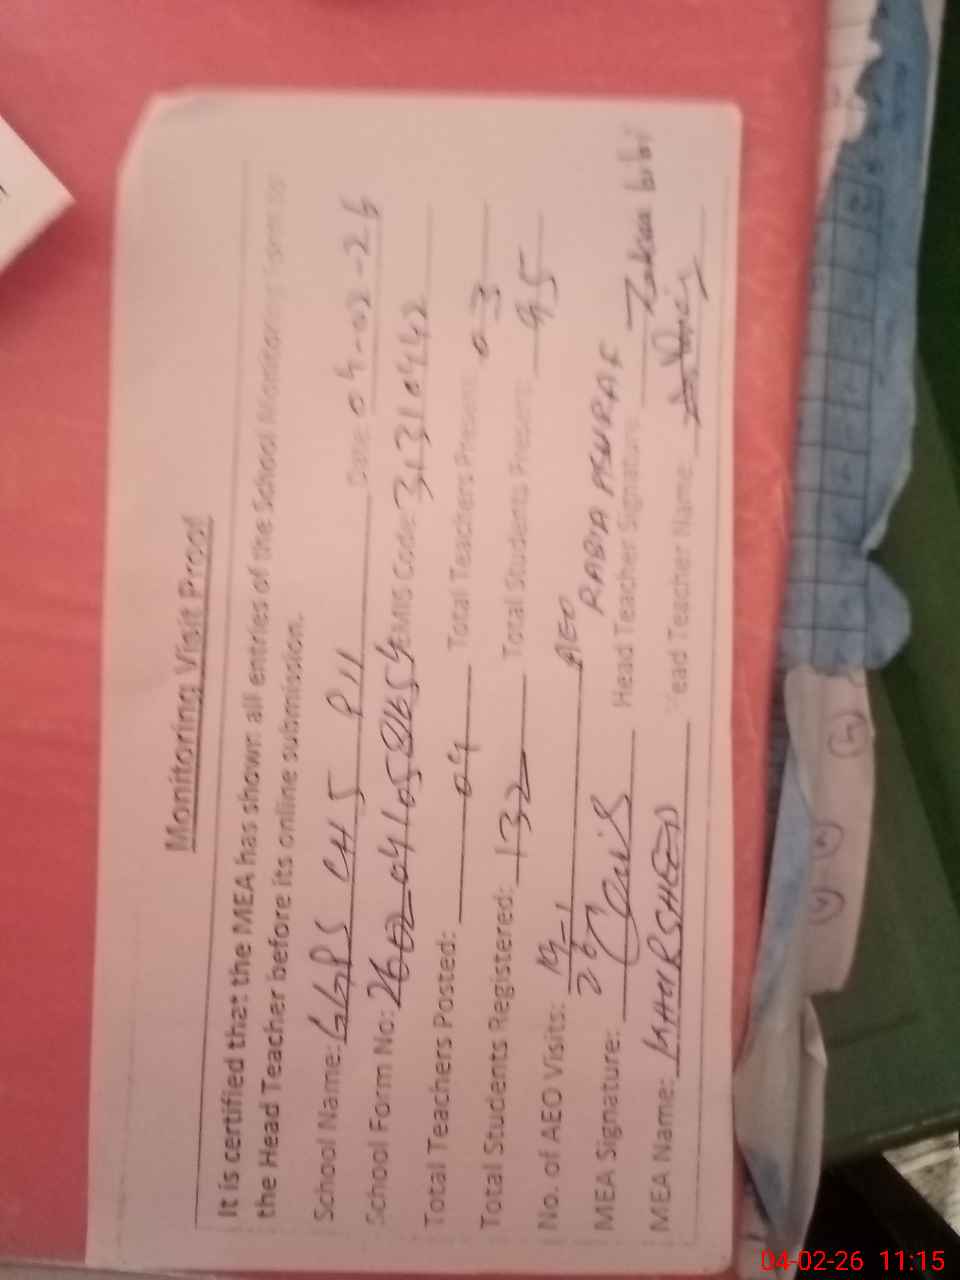 Monitoring Visit Proof
It is certified that the MEA has shown all entries of the School Monitoring Form to
the Head Teacher before its online submission.
School Name: GGPS CH 5 P II Date: 04-02-26
School Form No: EMIS Code: 31310442
Total Teachers Posted: 04 Total Teachers Present: 03
Total Students Registered: 132 Total Students Present: 95
No. of AEO Visits: AEO RABIA
MEA Signature: Head Teacher Signature: bibi
MEA Name: KHURSHEED Head Teacher Name:
04-02-26 11:15